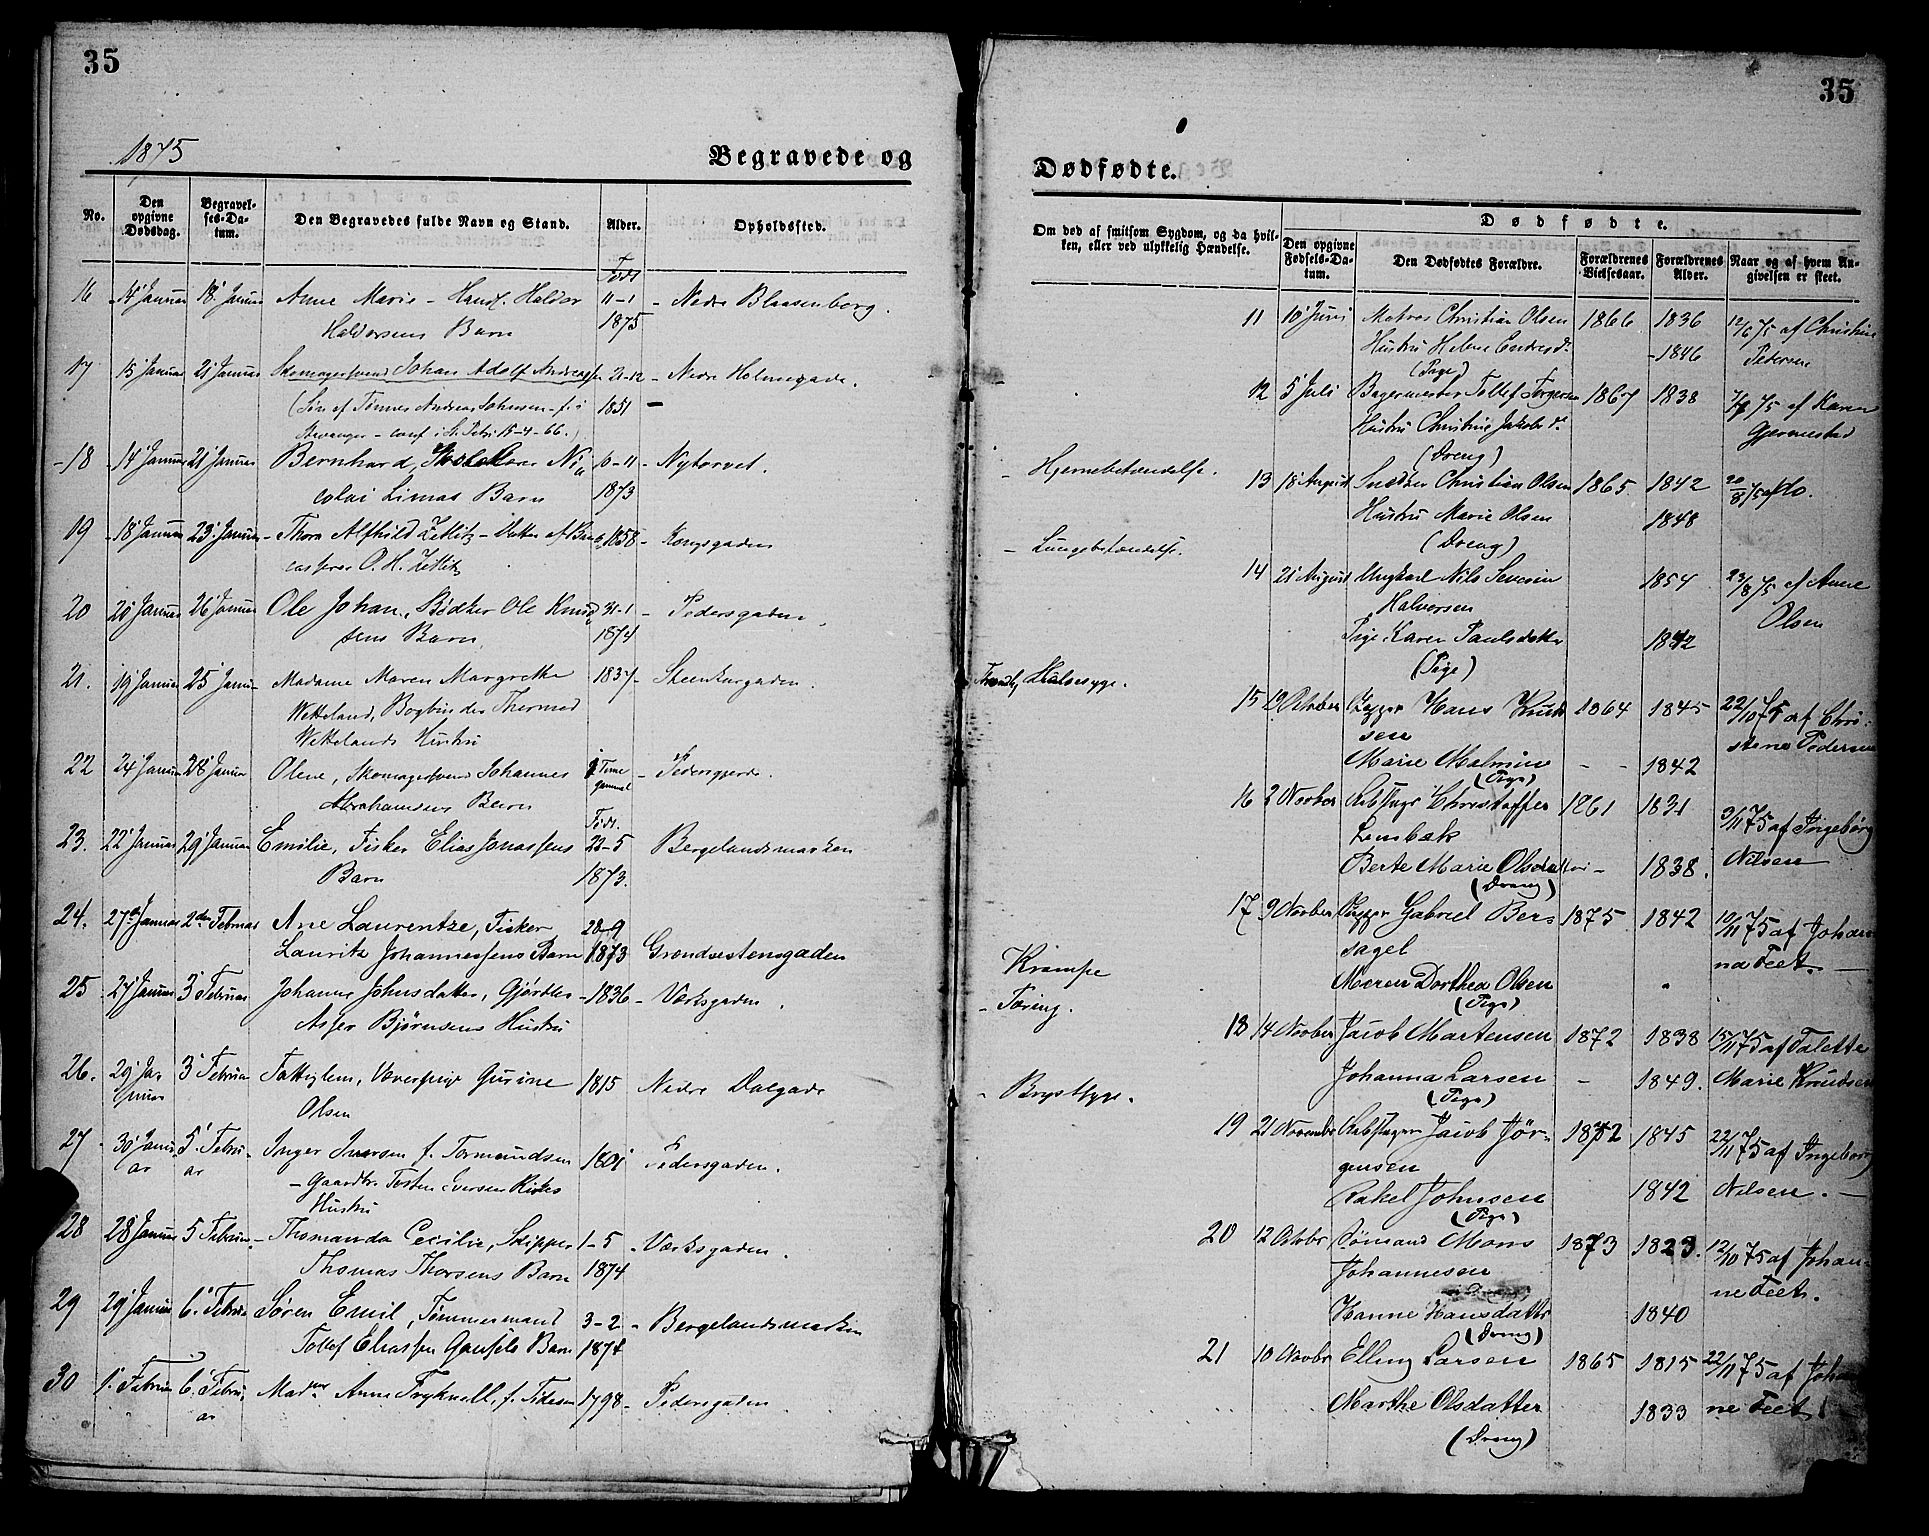 35
1875
Begravede og
No.
Den opgivne Dødsdag.
Begravelses-Datum.
Den Begravedes fulde Navn og Stand.
Alder.
Opholdssted.
16 14' Januar 18' Januar Anne Marie - Handl. Haldor Født 11-1 - Nedre Blaasenborg.
Haldorsens Barn 1875
17 15' Januar 21' Januar Skomagersvend Johan Adolf Andreassen 21-12 - Nedre Holmegade.
(Søn af Tønnes Andreas Johnsen - f. i 1851 -
Stavanger - conf i St. Petri 15-4-66.)
18 14' Januar 21' Januar Bernhard, Nic- 6-11 - Nytorvet.
colai Limas Barn 1873
19 18' Januar 23' Januar - Thora Alfhild Zetlitz - Datter af Ban- 1858 - Kongsgaden
casserer O. H. Zetlitz
20 20' Januar 26' Januar Ole Johan, Bødker Ole Knud- 31-1 - Pedersgaden.
sens Barn 1874
21. 19' Januar 25' Januar Madame Maren Margrethe 1837 - Steenkargaden.
Wetteland, Bogbinder Thormod
Wettelands Hustru
22 24' Januar 28' Januar Olene, Skomagersvend Johannes 1 Time - Pedersgjerde.
Abrahamsens Barn gammel
23. 22' Januar 29' Januar Emilie, Fisker Elias Jonassens Født 22-5 Bergelandsmarken
Barn 1873.
24. 27de Januar 2den Februar Ane Laurentze, Fisker 28-9
Lauritz Johannessens Barn 1873 Grøndsestensgaden
25 27' Januar 3' Februar Johanne Johnsdatter, Gjørtler - 1836 - Værksgaden.
Asser Bjørnsens Hustru
26. 29' Januar 3' Februar Fattiglem, Væverpige Gurine 1815 Nedre Dalgade
Olsen
27 30' Januar 5' Februar Inger Iversen f. Tormundsen 1801 Pedersgaden.
- Gaardbr. Tosten Iversen
Hustru
28 28' Januar 5' Februar - Thomanda Cecilie, Skipper 1-5 - Værksgaden.
Thomas Thorsens Barn 1874
29 29' Januar 6' Februar Søren Emil, Tømmermand 3-2 - Bergelandsmarken
Tollef Eliassen Gausels Barn 1874
30 1' Februar 6' Februar Madme Anne f. Tidesen 1798 - Pedersgaden.
35
Dødfødte.
Om død af smitsom Sygdom, og da hvilken, eller ved ulykkelig Hændelse.
Dødfødte.
Den opgivne Fødsels-Datum.
Den Dødfødtes Forældre.
Forældrenes Vielsesaar.
Forældrenes Alder.
Naar og af hvem Angivelsen er skeet.
- Hjernebetændelse.
- Lungebetændelse.
Halsesyge.
Krampe
- Tæring.
- Brystsyge.
11 10' Juni Matros Christian Olsen 1866 1836 12/6 75 af Christine
Hustru Helene Endresdr. - 1846 Pedersen
(Pige)
12 5' Juli Bagermester Tollef Torgersen 1867 1838 75 af Karen
Hustru Christine Jakobsdr. Gjermestad
(Dreng)
13 18' August Snedker Christian Olsen 1865 1842 20/8 75 af do.
Hustru Marie Olsen 1848
(Dreng)
14 21' August Ungkarl Nils Severin 1854 23/8 75 af Anne
Halvorsen Olsen
Pige Karen Paulsdatter 1842
(Pige)
15 Oktober Bygger Hans Knud- 1864 1845 22/10 75 af Chri-
sen stene Pedersen
Marie Malmine - - 1842
(Pige)
16 2 Novber Rebslager Christoffer 1861 1831 3/11 75 af Ingeborg
Lembæk Nilsen
Berte Marie Olsdatter - 1838.
(Dreng)
17 9 Novber Bygger Gabriel Ber- 1875 1842 10/11 75 af Johan-
sagel na Feet. -
Meren Dorthea Olsen "
(Pige)
18 14 Novber Jacob Martensen 1872 1838 15/11 75 af Talette
Johanna Larsen - 1849. Marie Knudsen
(Pige)
19 21 Novembr Rebslager Jacob Jør- 1872 1845 22/11 75 af Ingeborg
gensen
Rakel Johnsen 1842 Nilsen. -
(Pige)
20 12 Octobr Sømand Mons 1873 1823. 12/10 75 af Johan-
Johannesen ne Feet.
Hanne Hansdatter 1840
(Dreng)
21 10 Novbr Elling Larsen 1865 1815 22/11 75 af Johan-
Marthe Olsdatter 1833 ne Feet.
(Dreng)